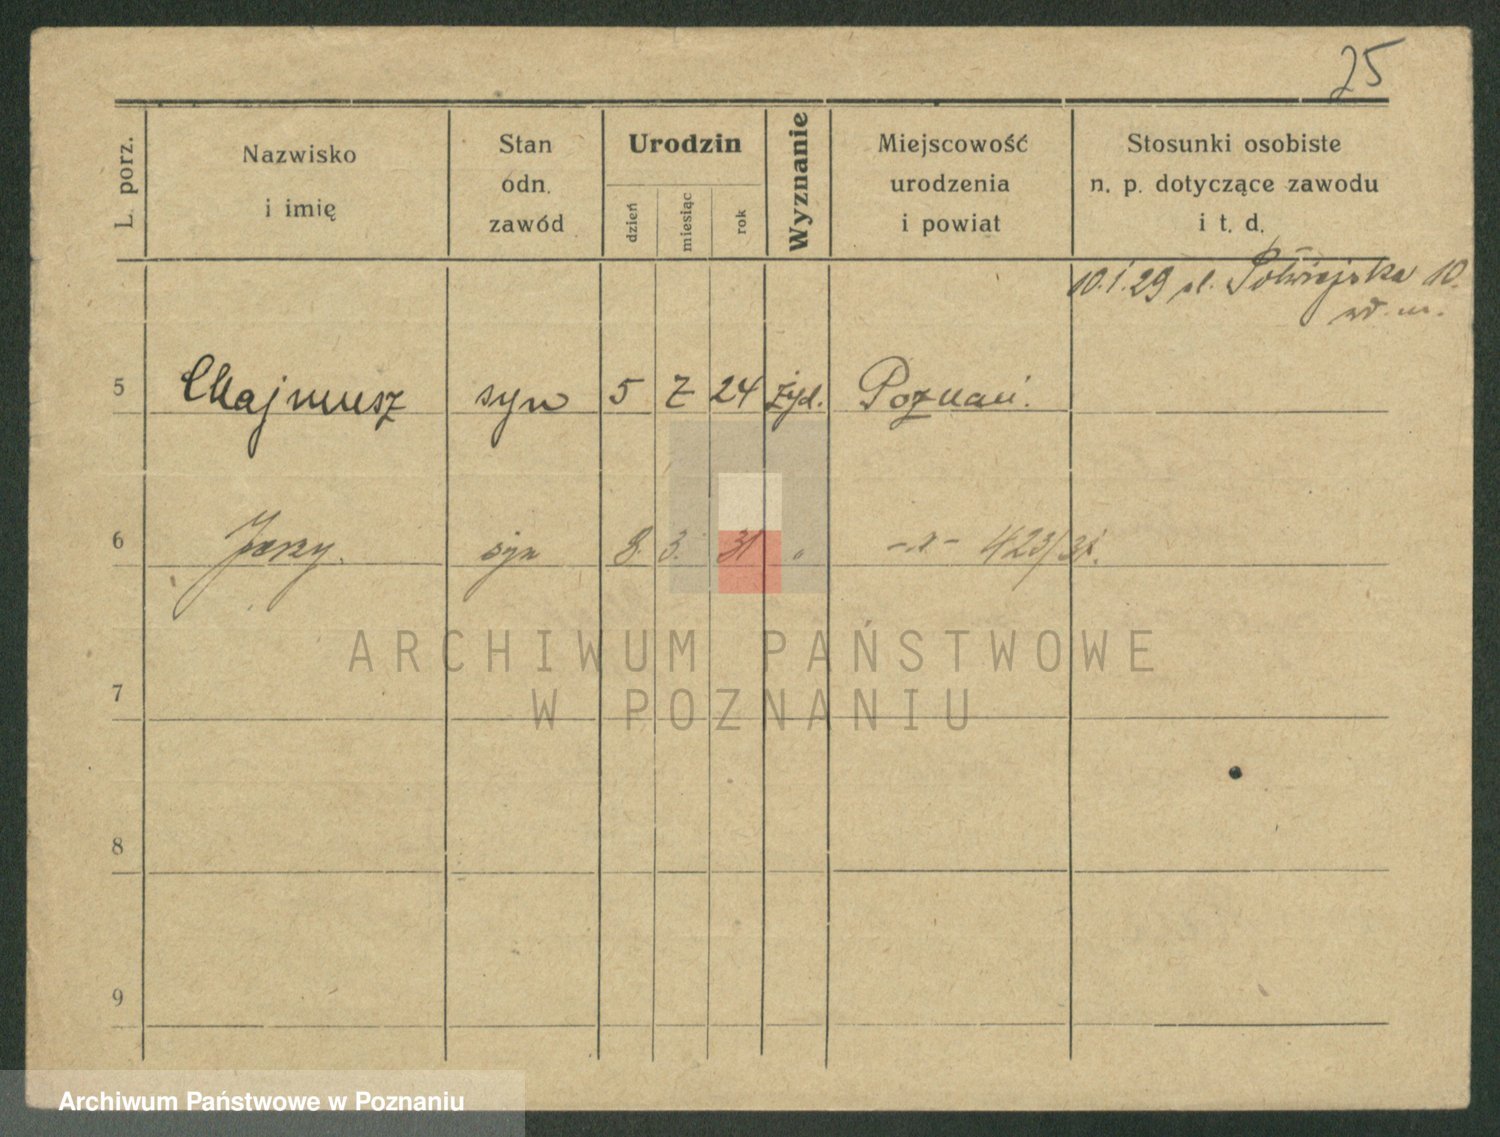 25
L. porz.
Nazwisko
i imię
Stan
odn.
zawód
Urodzin
dzień
miesiąc
rok
Wyznanie
Miejscowość
urodzenia
i powiat
Stosunki osobiste
n. p. dotyczące zawodu
i t. d.
10.1.29 ul. Półwiejska 10.
5 Chajmusz syn 5 2 24 żyd. Poznań.
6 Jerzy. syn 8. 3. 31 " -"- 423/31.
ARCHIWUM PAŃSTWOWE
W POZNANIU
7
8
9
Archiwum Państwowe w Poznaniu